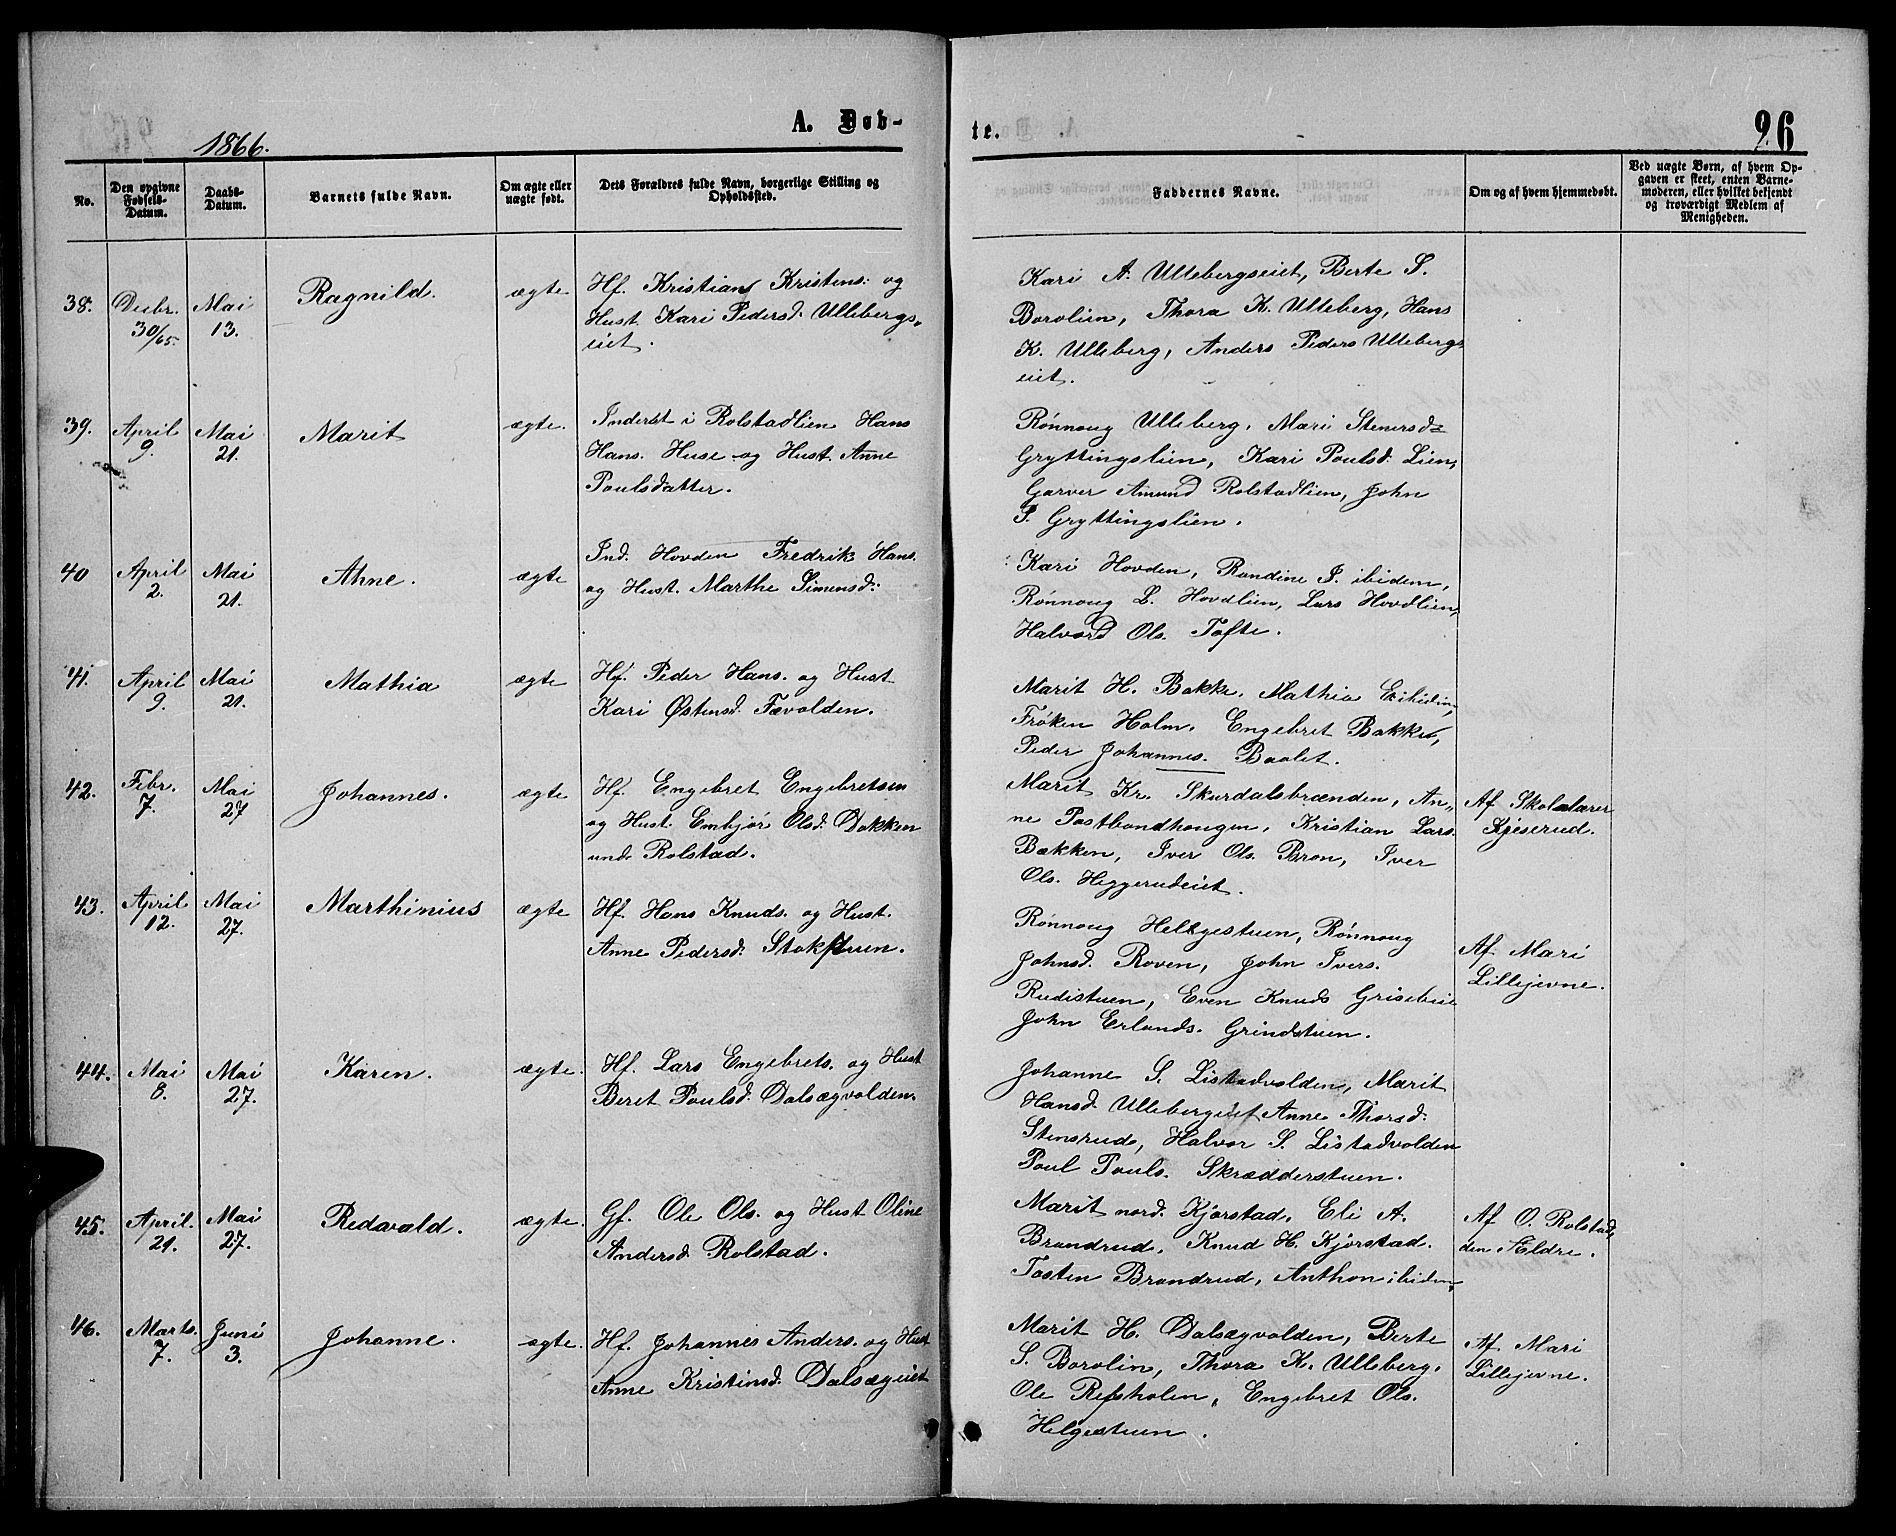 1866.
A. Døb-
te.
26
No.
Den opgivne
Fødsels-
Datum.
Daabs-
Datum.
Barnets fulde Navn.
Om ægte eller
uægte født.
Dets Forældres fulde Navn, borgerlige Stilling og
Opholdssted.
Faddernes Navne.
Om og af hvem hjemmedøbt.
Ved uægte Børn, af hvem Op-
gaven er skeet, enten Barne-
moderen, eller hvilket bekjendt
og troværdigt Medlem af
Menigheden.
38.
Decbr.
30/65.
Mai
13.
Ragnild.
ægte
Hf. Kristian Kristens. og
Hust. Kari Pedersd. Ullebergs-
eiet.
Kari A. Ullebergseiet, Berte S.
Borolien, Thora K. Ulleberg, Hans
K. Ulleberg, Anders Peders Ullebergs
eiet.
39.
April
9.
Mai
21.
Marit
ægte.
Inderst i Rolstadlien Hans
Hans. Huse og Hust. Anne
Poulsdatter.
Rønnoug Ulleberg, Mari Stenersd=
Gryttingslien, Kari Poulsd. Lien,
Garver Amund Rolstadlien, John
P. Gryttingslien.
40
April
2.
Mai
21.
Anne.
ægte
Ind. Hovden Fredrik Hans.
og Hust. Marthe Simensd:
Kari Hovden, Randine J. ibidem,
Rønnoug L. Hovdlien, Lars Hovdlien,
Halvord Ols. Tofte.
41.
April
9.
Mai
21.
Mathia
ægte
Hf. Peder Hans. og Hust
Kari Østensd. Fævolden.
Marit H. Bakke, Mathia
Frøken Holm, Engebret Bakke,
Peder Johannes. Baalet.
42.
Febr.
7.
Mai
27
Johannes.
ægte
Hf. Engebret Engebretsen
og Hust. Embjør Olsd. Dokken
unde Rolstad.
Marit Kr. Skurdalsbrænden, An-
ne Postbondhougen, Kristian Lars.
Bækken, Iver Ols. Bron, Iver
Ols. Heggerudeiet.
Af Skolelærer
Kjeserud.
43.
April
12.
Mai
27.
Marthinius
ægte
Hf. Hans Knuds. og Hust.
Anne Pedersd. Stokstuen.
Rønnoug Helgestuen, Rønnoug
Johnsd. Roven, John Ivers.
Rudistuen, Even Knuds
John Erlands. Grindstuen.
Af Mari
Lillejevne.
44.
Mai
8.
Mai
27.
Karen.
ægte.
Hf. Lars Engebrets. og Hust
Beret Poulsd. Dalsægvolden.
Johanne S. Listadvolden, Marit
Hansd. Ullebergeiet Anne Thorsd.
Stensrud, Halvor S. Listadvolden
Poul Pouls. Skrædderstuen.
45.
April.
21.
Mai
27.
Redvald.
ægte.
Gf. Ole Ols. og Hust Oline
Andersd. Rolstad.
Marit nord. Kjørstad, Eli A.
Brandrud, Knud H. Kjørstad.
Tosten Brandrud, Anthon ibidem,
Af O. Rolstad,
den Ældre.
46.
Marts.
7.
Juni
3.
Johanne.
ægte.
Hf. Johannes Anders. og Hust
Anne Kristensd. Dalsægeiet
Marit H. Dalsægvolden, Berte
S. Borolin, Thora K. Ulleberg.
Ole Refsholen, Engebret Ols.
Helgestuen.
Af Mari
Lillejevne.